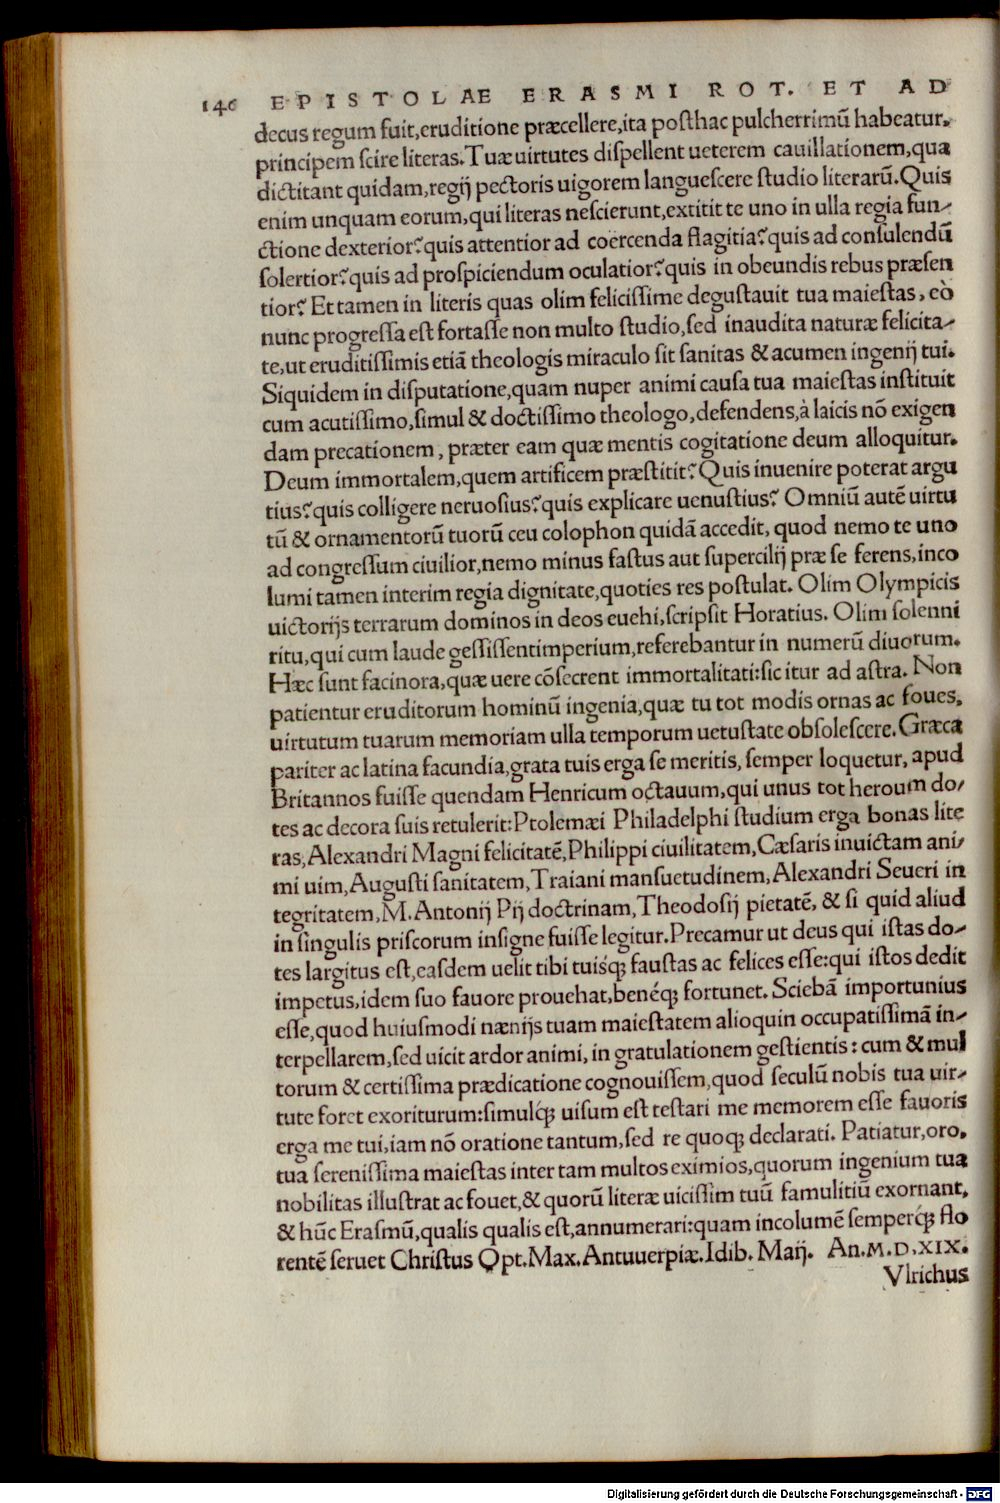 146 EPISTOLAE ERASMI ROT. ET AD
decus regum fuit,eruditione præcellere,ita posthac pulcherrimũ habeatur,
principem scire literas.Tuæ uirtutes dispellent ueterem cauillationem,qua
dictitant quidam,regij pectoris uigorem languescere studio literarũ.Quis
enim unquam eorum,qui literas nescierunt,extitit te uno in ulla regia fun-
ctione dexterior?quis attentior ad coercenda flagitia?quis ad consulendũ
solertior?quis ad prospiciendum oculatior?quis in obeundis rebus præsen
tior? Et tamen in literis quas olim felicissime degustauit tua maiestas, eò
nunc progressa est fortasse non multo studio,sed inaudita naturæ felicita-
te,ut eruditissimis etiã theologis miraculo sit sanitas & acumen ingenij tui.
Siquidem in disputatione,quam nuper animi causa tua maiestas instituit
cum acutissimo,simul & doctissimo theologo,defendens,à laicis nõ exigen
dam precationem, præter eam quæ mentis cogitatione deum alloquitur.
Deum immortalem,quem artificem præstitit? Quis inuenire poterat argu
tius?quis colligere neruosius?quis explicare uenustius? Omniũ autẽ uirtu
tũ & ornamentorũ tuorũ ceu colophon quidã accedit, quod nemo te uno
ad congressum ciuilior,nemo minus fastus aut supercilij præ se ferens,inco
lumi tamen interim regia dignitate,quoties res postulat. Olim Olympicis
uictorijs terrarum dominos in deos euehi,scripsit Horatius. Olim solenni
ritu,qui cum laude gessissentimperium,referebantur in numerũ diuorum.
Hæc sunt facinora,quæ uere cõsecrent immortalitati:sic itur ad astra. Non
patientur eruditorum hominũ ingenia,quæ tu tot modis ornas ac foues,
uirtutum tuarum memoriam ulla temporum uetustate obsolescere.Græca
pariter ac latina facundia,grata tuis erga se meritis, semper loquetur, apud
Britannos fuisse quendam Henricum octauum,qui unus tot heroum do/
tes ac decora suis retulerit:Ptolemæi Philadelphi studium erga bonas lite
ras,Alexandri Magni felicitatẽ,Philippi ciuilitatem,Cæsaris inuictam ani/
mi uim,Augusti sanitatem,Traiani mansuetudinem,Alexandri Seueri in
tegritatem,M.Antonij Pij doctrinam,Theodosij pietatẽ, & si quid aliud
in singulis priscorum insigne fuisse legitur.Precamur ut deus qui istas do-
tes largitus est,easdem uelit tibi tuisq; faustas ac felices esse:qui istos dedit
impetus,idem suo fauore prouehat,benéq; fortunet. Sciebã importunius
esse,quod huiusmodi nænijs tuam maiestatem alioquin occupatissimã in-
terpellarem,sed uicit ardor animi, in gratulationem gestientis : cum & mul
torum & certissima prædicatione cognouissem,quod seculũ nobis tua uir-
tute foret exoriturum:simulq́; uisum est testari me memorem esse fauoris
erga me tui,iam nõ oratione tantum,sed re quoq; declarati. Patiatur,oro,
tua serenissima maiestas inter tam multos eximios,quorum ingenium tua
nobilitas illustrat ac fouet,& quorũ literæ uicissim tuũ famulitiũ exornant,
& hũc Erasmũ,qualis qualis est,annumerari:quam incolumẽ semperq́; flo
rentẽ seruet Christus Opt.Max.Antuuerpiæ.Idib. Maij. An.M.D.XIX.
Vlrichus
Digitalisierung gefördert durch die Deutsche Forschungsgemeinschaft - DFG